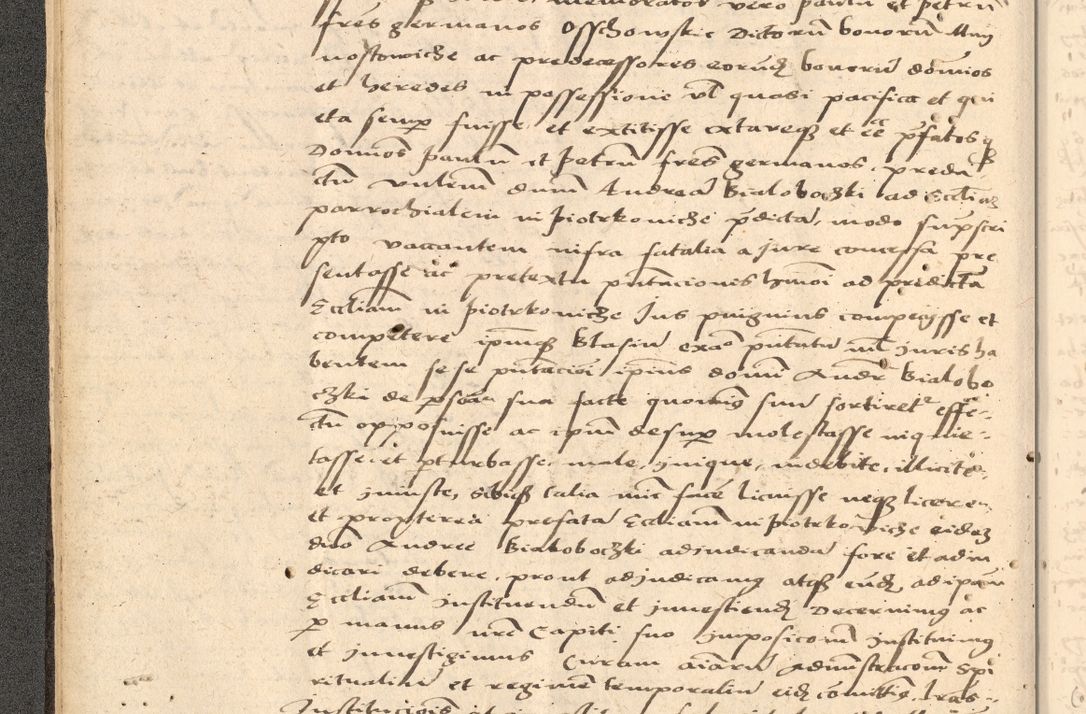 memoratos vero paulū et petrū
frēs germanos Osschowskie dictorū bonorū
nostowicze ac predecessores eorūd bonorū domīos
et heredes in possessione vl quasi pacifica et qui
eta semp fuisse et extitisse extareqz et ēē pfatos
Domīos paulū et petrū frēs germanos, preda
ctū vnlem dnm Andreā Bialoboczki ad Eccliaz
parrochialem in piotrkoviche pdicta, modo supscri
pto vaccantem infra fatalia a jure concessa pre
sentasse ac pretextu pntacionis hmoi ad predictā
Eccliam in piotrkoviche Jus pinguius compegisse et
competere ipmqz Blasiū exaō pntatū nul juris ha
bentem se se pntacioī ipius domī Andr Bialobo
czki de psona sua facte quominus suū sortiret effe-
ctū opposuisse ac ipm desup molestasse inquie-
tasse et pturbasse, male, inique, indebite, illicite
et iniuste, sibiqz talia mīe face licuisse neqz licere
et propterea prefatā Eccliam in piotrkowiche eidez
dno Andree Bialoboczki adjudicandā fore et adiu
dicari debere, prout adjudicamus atqz eūd, ad ipam
Eccliam instituendū et investiend Decernimus ac
p manus nrē Capiti suo imposicom instituimus
et investigimus Curam aīarū Administracom spi
ritualiū et regimē temporaliū eid comittim, lras
Institucionis